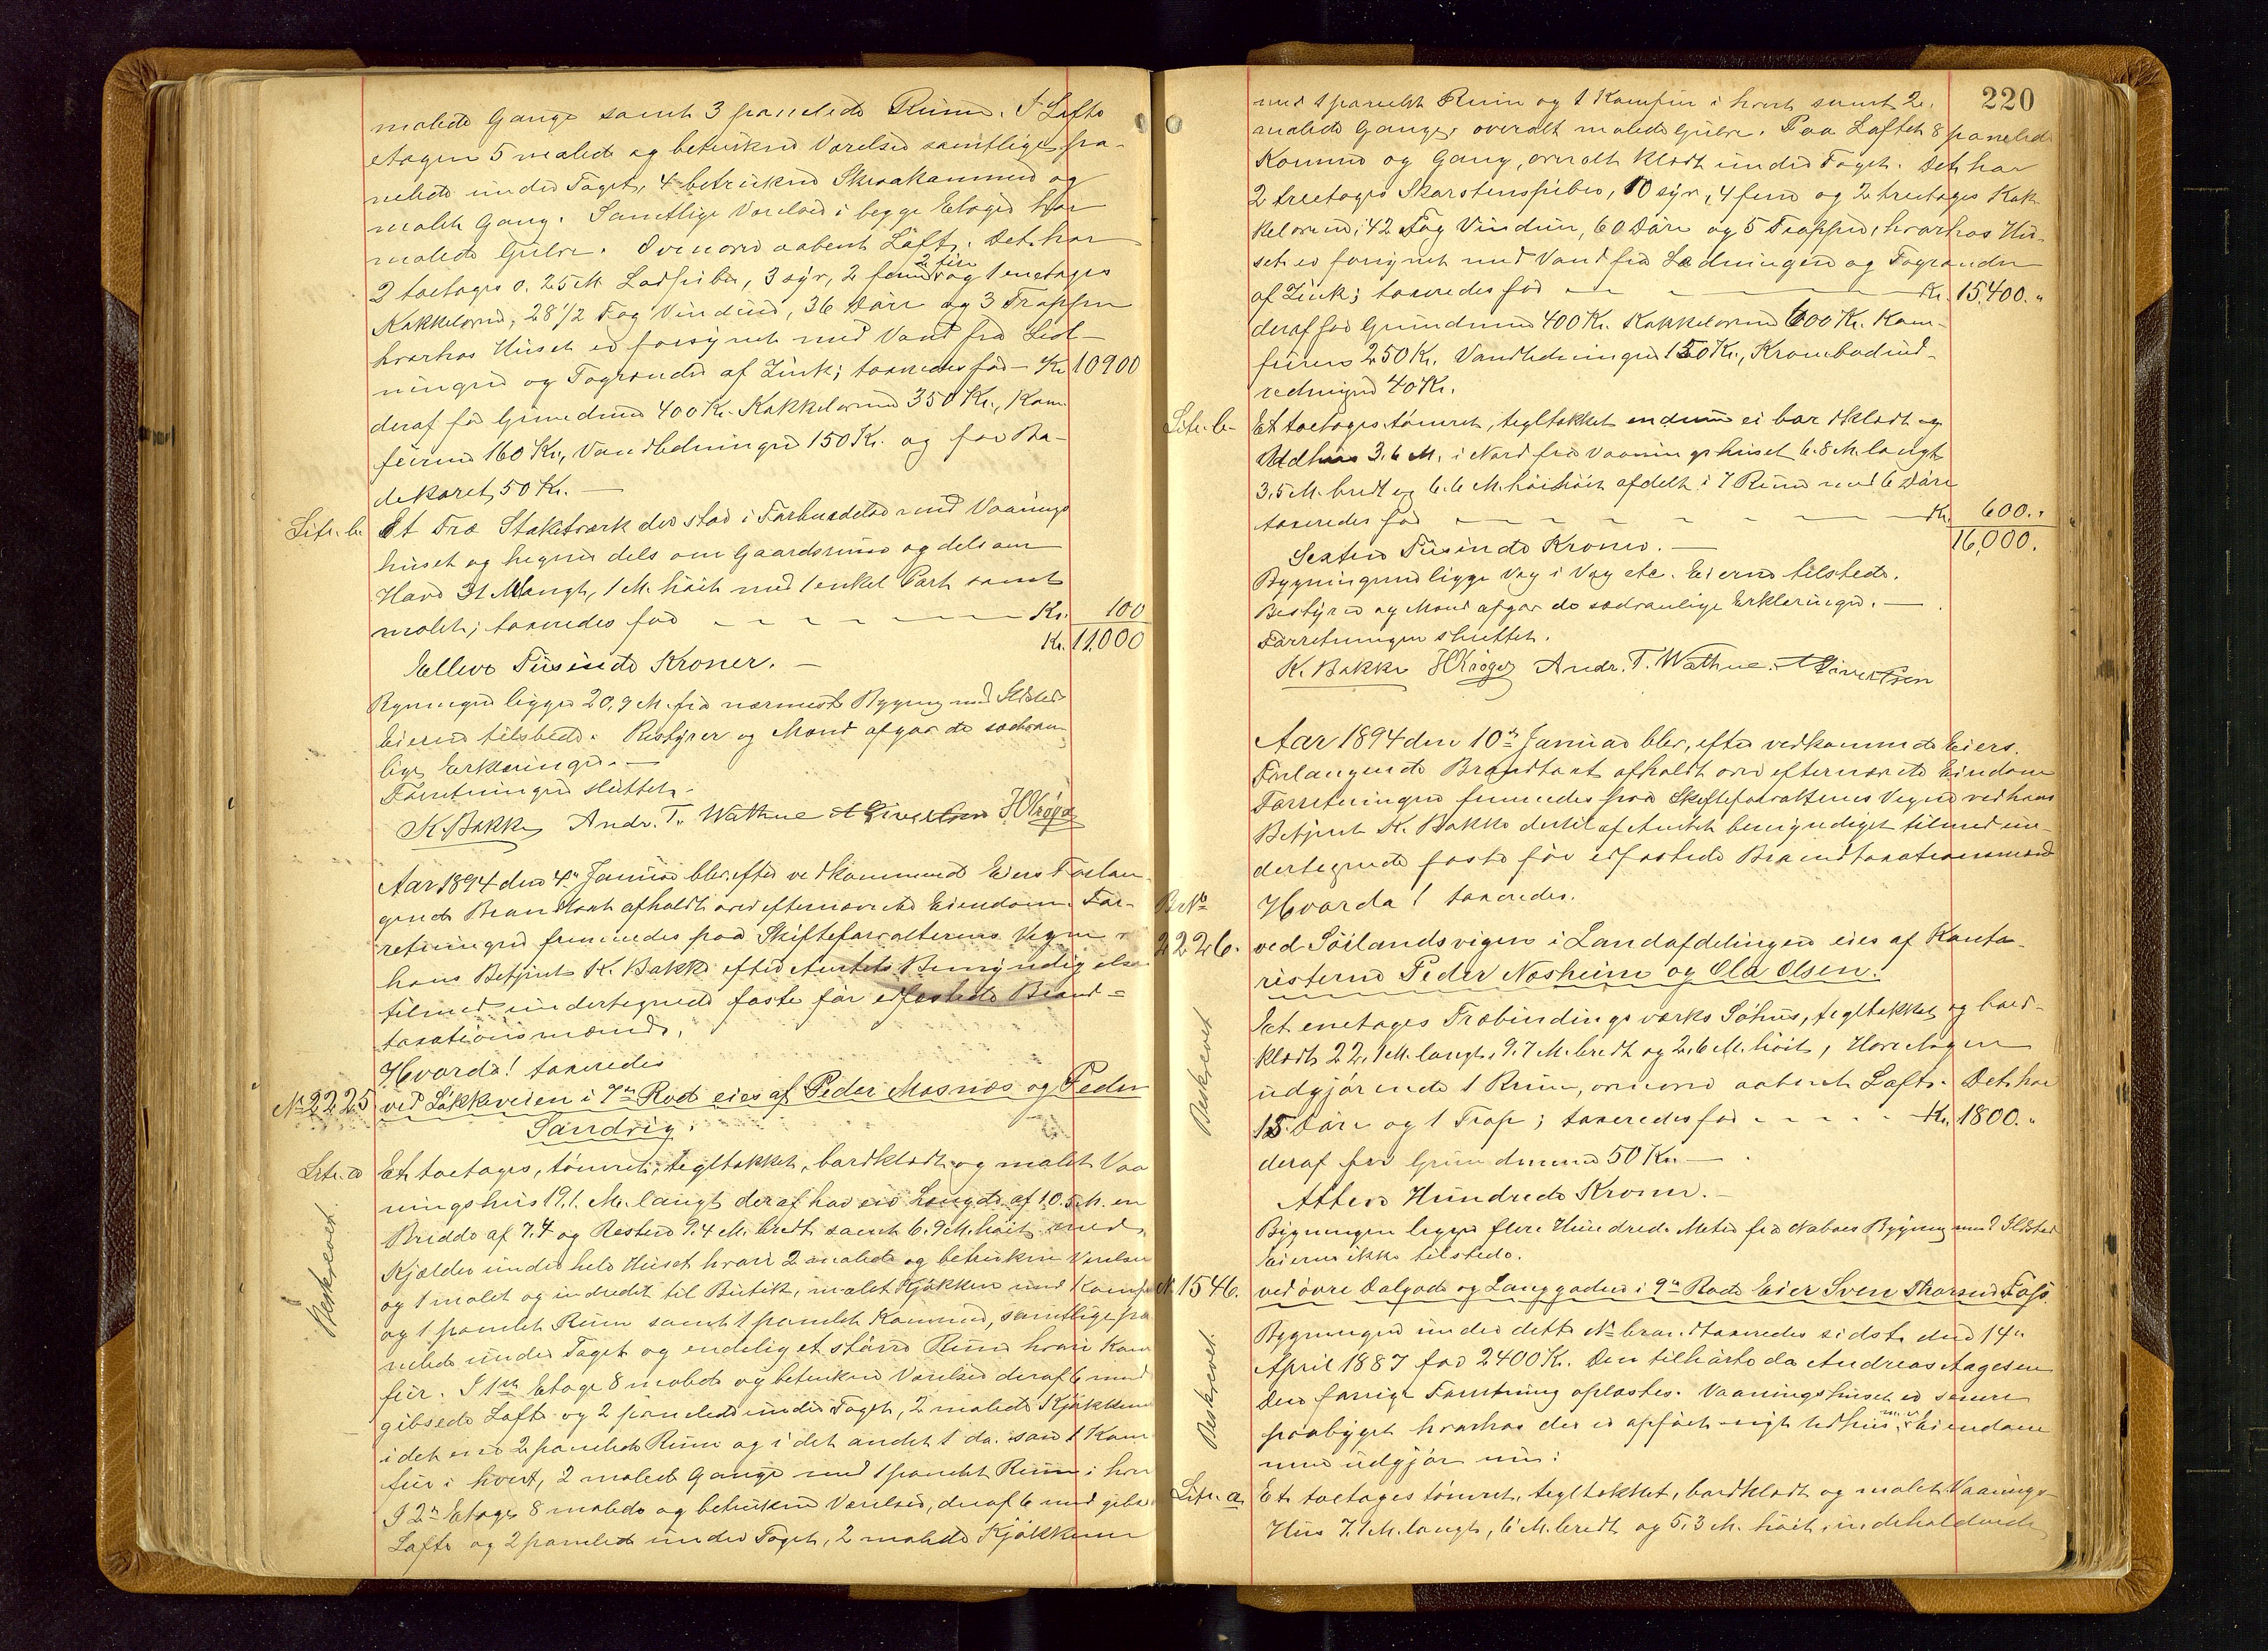 malede Gange samt 3 panelede Rum. I Lofts
etagen 5 malede og betrukne Værelser samtlige pa-
nelede under Taget, 4 betrukne Skraakammer og
malet Gang. Samtlige Værelser i begge Etager har
malede Gulve. Ovenover aabent Loft. Det har
2 toetages o. 25 M. Lodpiber, 3 syv, 2 fem 2 fire og 1 enetages
Kakkelovne, 28 1/2 Fag Vinduer, 36 Døre og 3 Trapper
hvorhos Huset er forsynet med Vand fra Led-
ningen og Tagrender af Zink; taxeredes for - Kr. 10900
deraf for Grundmur 400 Kr. Kakkelovne 350 Kr., Kom-
furene 160 Kr., Vandledningen 150 Kr. og for Ba-
dekaret 50 Kr. —
Litr. b. Et Træ Staketværk der staar i Forbindelse med Vaanings
huset og hegner dels om Gaardsrum og dels om
Have 31 M langt, 1 M. høit med 1 enkel Port samt
malet; taxeredes for — Kr. 100
Kr. 11,000
Elleve Tusinde Kroner. —
Bygningen ligger 20,9 M. fra nærmeste Bygning med Ildsted
Eieren tilstede. Bestyrer og Mænd afgav de sædvan-
lige Erklæringer. —
Forretningen sluttet.
K. Bakke Andr. T. Wathne A Sivertsen H Krøger
Aar 1894 den 4de Januar blev efter vedkommende Eiers Forlan-
gende Brandtaxt afholdt over efternævnte Eiendom. For-
retningen fremmedes paa Skifteforvalterens Vegne v
hans Betjent K. Bakke efter Amtets Bemyndigelse
tilmed undertegnede faste før edfæstede Brand=
taxationsmænd.
Hvorda! taxeredes
No 2225 ved Løkkeveien i 7de Rode eies af Peder Mosnæs og Peder
Sandvig.
Litr. a Et toetages, tømret, tegltækket, bordklædt og malet Vaa
ningshus 19.1. M. langt deraf har en Længde af 10.5 M. en
Bredde af 7.4 og Resten 9.4 M. bredt samt 6.9 M. høit med
Kjælder under hele Huset hvori 2 malede og betrukne Værelser
og 1 malet og indredet til Butik, malet Kjøkken med Komfur
og 1 panelet Rum samt 1 panelet Kammer, samtlige pa
nelede under Taget og endelig et større Rum hvori Kom
fur. I 1ste Etage 8 malede og betrukne Værelser deraf 6 med
gibsede Lofte og 2 panelede under Taget, 2 malede Kjøkkener
i det ene 2 panelede Rum og i det andet 1 do. samt 1 Kom
fur i hvert, 2 malede Gange med 1 panelet Rum i hver
I 2den Etage 8 malede og betrukne Værelser, deraf 6 med gibs
Lofte og 2 panelede under Taget, 2 malede Kjøkkener
Beskrevet.
220
med 1 panelet Rum og 1 Komfur i hvert samt 2
malede Gange, overalt malede Gulve. Paa Loftet 8 panelede
Kammer og Gang, overalt klædt under Taget. Det har
2 treetages Skorstenspiber, 10 syv, 4 fem og 2 treetages Kak-
kelovne, 42 Fag Vinduer, 60 Døre og 5 Trapper, hvorhos Hu-
set er forsynet med Vand fra Ledningen og Tagrender
af Zink; taxeredes for — Kr. 15,400. "
deraf for Grundmur 400 Kr. Kakkelovne 600 Kr. Kom-
furene 250 Kr. Vandledningen 150 Kr., Krambodind-
redningen 40 Kr.
Litr. b Et toetages tømret, tegltækket endnu ei bordklædt og
Udhus 3.6 M. i Nord fra Vaaningshuset 6.8 M. langt
3,5 M. bredt og 6.6 M. høit afdelt i 7 Rum med 6 Døre
taxeredes for — Kr. 600. "
16,000.
Sexten Tusinde Kroner. —
Bygningerne ligge Væg i Væg etc. Eierne tilstede.
Bestyrer og Mænd afgav de sædvanlige Erklæringer. —
Forretningen sluttet.
K. Bakke H Krøger Andr. T. Wathne. A Sivertsen
Aar 1894 den 10de Januar blev, efter vedkommende Eiers
Forlangende Brandtaxt afholdt over efternævnte Eiendom
Forretningen fremmedes paa Skifteforvalterens Vegne ved hans
Betjent K. Bakke dertil af Amtet bemyndiget tilmed un-
dertegnede faste før edfæstede Brandtaxationsmænd
Hvorda! taxeredes.
Br No
2226. ved Søilandsvigen i Landafdelingen eies af Konto-
risterne Peder Næsheim og Ola Olsen.
Et enetages Træbindingsværks Søhus, tegltækket og bord-
klædt 22.1 M. langt, 9.7 M. bredt og 2,6 M. høit, Hovedetagen
udgjørende 1 Rum, ovenover aabent Loft. Det har
15 Døre og 1 Trap; taxeredes for — Kr. 1800. "
deraf for Grundmuren 50 Kr. —
Atten Hundrede Kroner. —
Bygningen ligger flere Hundrede Meter fra Naboes Bygning med Ildsted
Eierne ikke tilstede.
Beskrevet
No 1546. ved øvre Dalgade og Langgaden i 9de Rode Eier Sven Thorsen Foss
Bygningen under dette No brandtaxeredes sidst den 14de
April 1887 for 2400 Kr. Den tilhørte da Andreas Aagesen
Den forrige Forretning oplæstes. Vaaningshuset er senere
paabygget hvorhos der er opført nyt Udhus m. v. Eiendom
men udgjør nu:
Beskrevet.
Litr. a. Et toetages tømret, tegltækket, bordklædt og malet Vaanings-
Hus 7.1 M. langt, 6 M. bredt og 5,3 M. høit, indeholdende